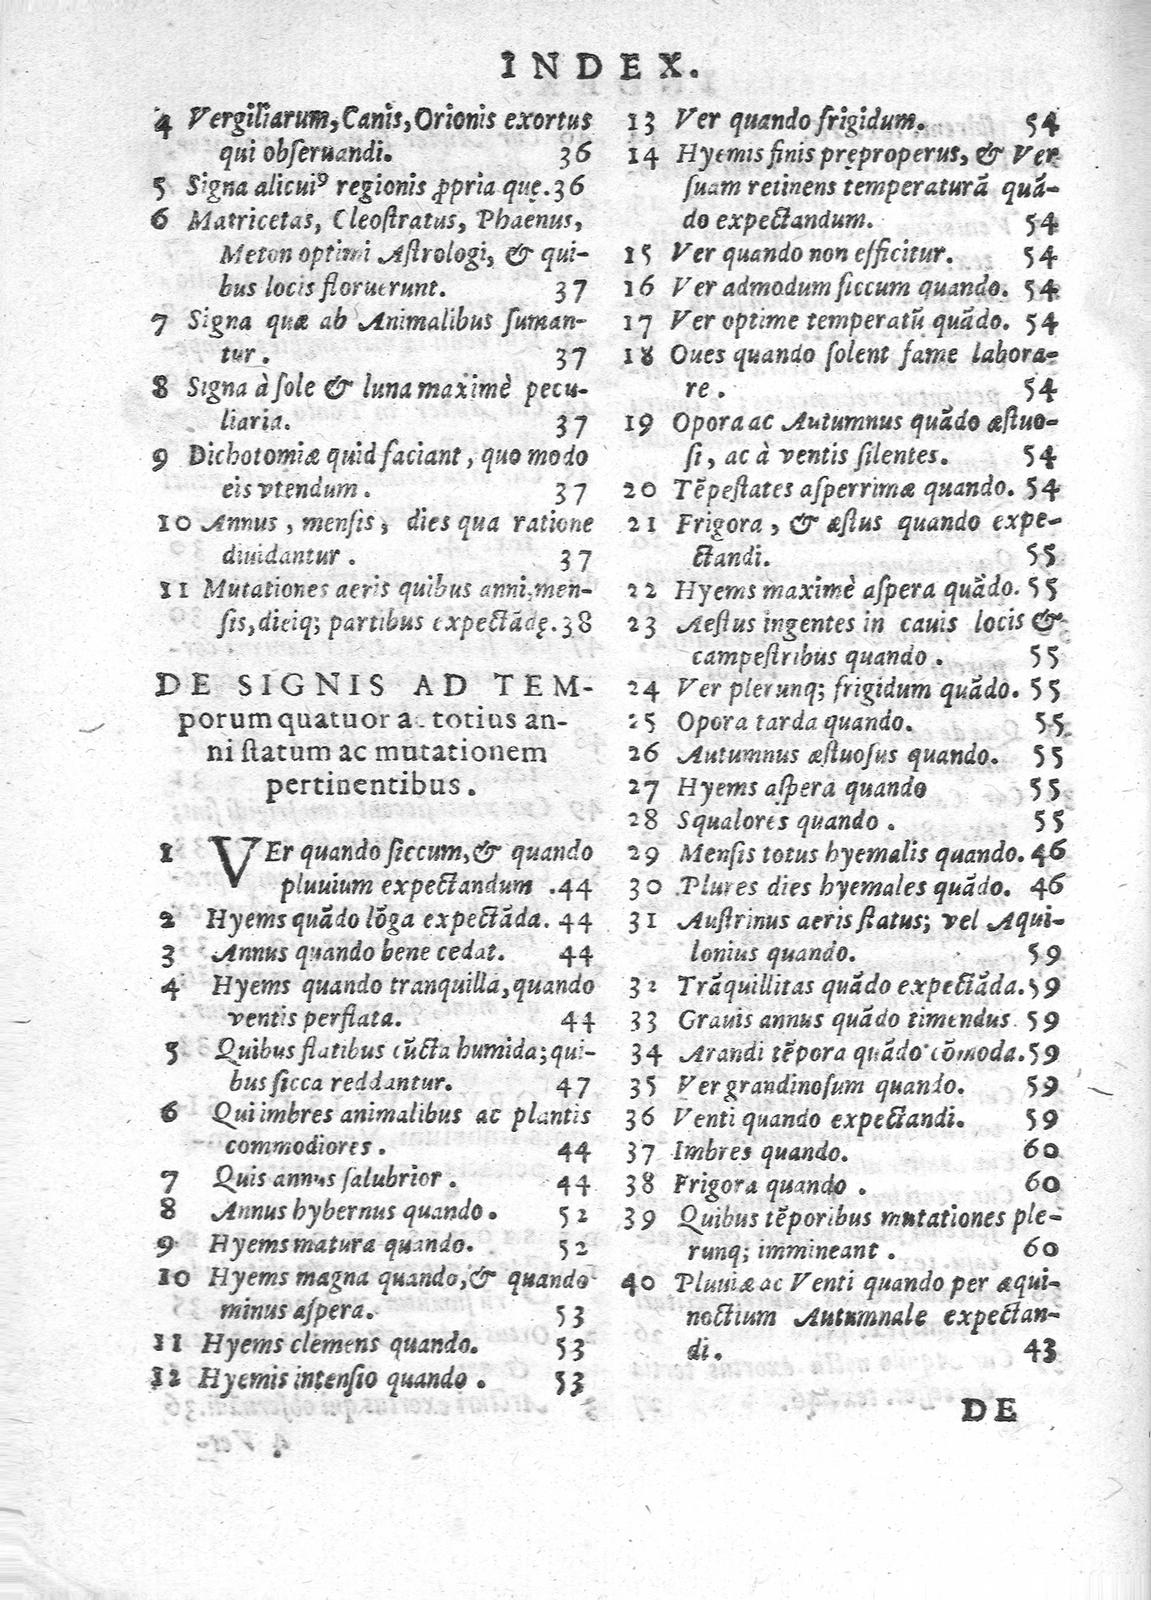 INDEX.
4 Vergiliarum, Canis, Orionis exortus
qui obſeruandi. 36
5 Signa alicuiꝰ regionis ꝓpria quę. 36
6 Matricetas, Cleoſtratus, Phaenus,
Meton optimi Aſtrologi, & qui-
bus locis floruerunt. 37
7 Signa quæ ab Animalibus ſuman-
tur. 37
8 Signa à ſole & luna maximè pecu-
liaria. 37
9 Dichotomiæ quid faciant, quo modo
eis vtendum. 37
10 Annus, menſis, dies qua ratione
diuidantur. 37
11 Mutationes aeris quibus anni, men-
ſis, dieiq; partibus expectãdę. 38
DE SIGNIS AD TEM-
porum quatuor ac totius an-
ni ſtatum ac mutationem
pertinentibus.
1 VEr quando ſiccum, & quando
pluuium expectandum. 44
2 Hyems quãdo lõga expectãda. 44
3 Annus quando bene cedat. 44
4 Hyems quando tranquilla, quando
ventis perflata. 44
5 Quibus flatibus cũcta humida; qui-
bus ſicca reddantur. 47
6 Qui imbres animalibus ac plantis
commodiores. 44
7 Quis annus ſalubrior. 44
8 Annus hybernus quando. 52
9 Hyems matura quando. 52
10 Hyems magna quando, & quando
minus aſpera. 53
11 Hyems clemens quando. 53
12 Hyemis intenſio quando. 53
13 Ver quando frigidum. 54
14 Hyemis finis pręproperus, & Ver
ſuam retinens temperaturã quã-
do expectandum. 54
15 Ver quando non efficitur. 54
16 Ver admodum ſiccum quando. 54
17 Ver optime temperatũ quãdo. 54
18 Oues quando ſolent fame labora-
re. 54
19 Opora ac Autumnus quãdo æſtuo-
ſi, ac à ventis ſilentes. 54
20 Tẽpeſtates aſperrimæ quando. 54
21 Frigora, & æſtus quando expe-
ctandi. 55
22 Hyems maximè aſpera quãdo. 55
23 Aeſtus ingentes in cauis locis &
campeſtribus quando. 55
24 Ver plerunq; frigidum quãdo. 55
25 Opora tarda quando. 55
26 Autumnus æſtuoſus quando. 55
27 Hyems aſpera quando 55
28 Squalores quando. 55
29 Menſis totus hyemalis quando. 46
30 Plures dies hyemales quãdo. 46
31 Auſtrinus aeris ſtatus; vel Aqui-
lonius quando. 59
32 Trãquillitas quãdo expectãda. 59
33 Grauis annus quãdo timendus. 59
34 Arandi tẽpora quãdo cõmoda. 59
35 Ver grandinoſum quando. 59
36 Venti quando expectandi. 59
37 Imbres quando. 60
38 Frigora quando. 60
39 Quibus tẽporibus mutationes ple-
runq; immineant. 60
40 Pluuiæ ac Venti quando per æqui-
noctium Autumnale expectan-
di. 43
DE